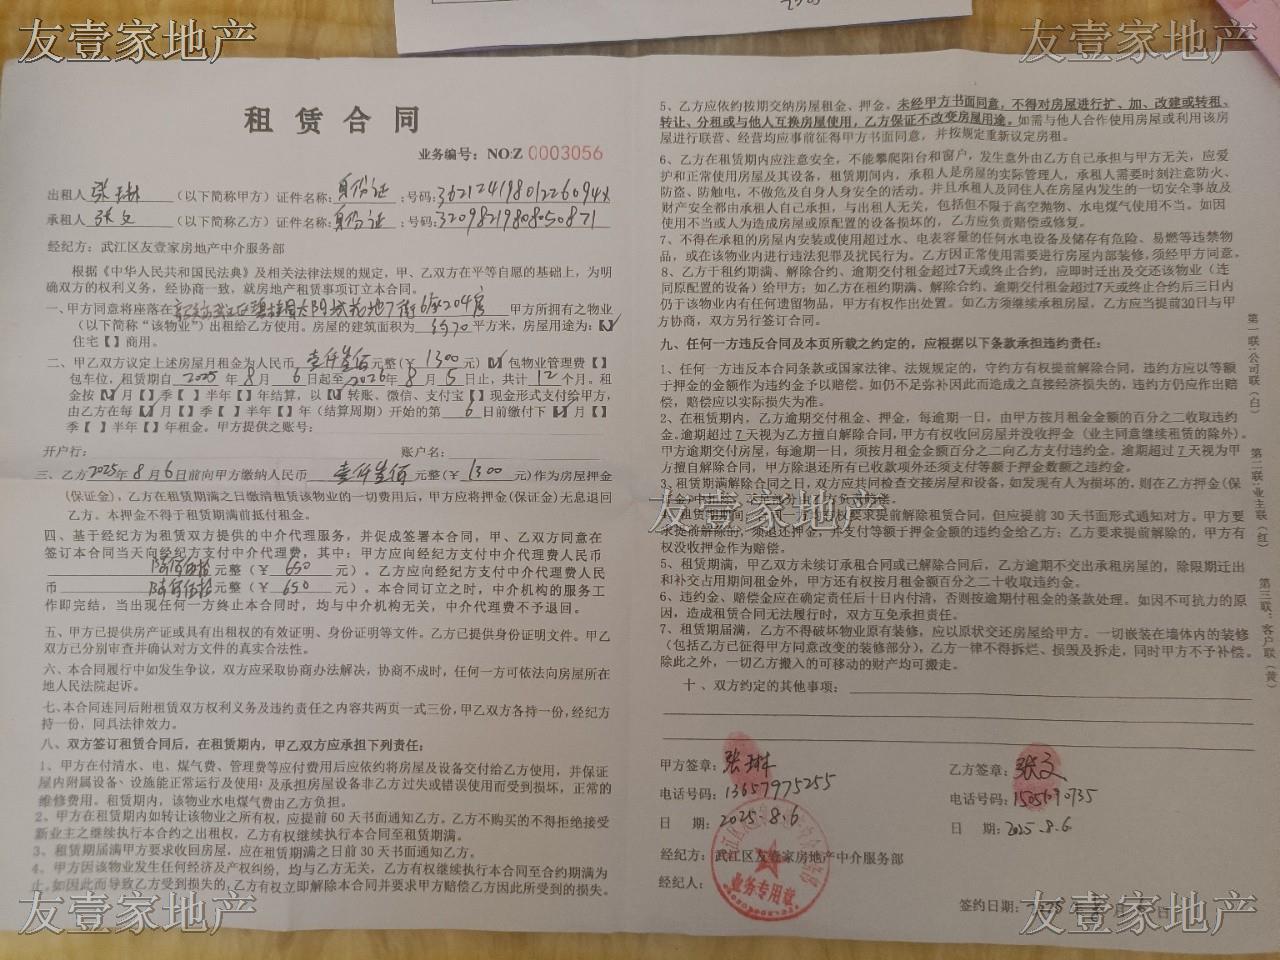 友壹家地产
友壹家地产
租赁合同
业务编号：NO:Z 0003056
出租人 张琳 （以下简称甲方）证件名称：身份证：号码：36212419801226094X
承租人 张文 （以下简称乙方）证件名称：身份证：号码：32098219808050871
经纪方：武江区友壹家房地产中介服务部
根据《中华人民共和国民法典》及相关法律法规的规定，甲、乙双方在平等自愿的基础上，为明
确双方的权利义务，经协商一致，就房地产租赁事项订立本合同。
一、甲方同意将座落在 碧桂园太阳城花地7街6座204房 甲方所拥有之物业
（以下简称“该物业”）出租给乙方使用。房屋的建筑面积为 约70 平方米，房屋用途为：【√】
住宅【 】商用。
二、甲乙双方议定上述房屋月租金为人民币 壹仟叁佰 元整（￥ 1300 元）【√】包物业管理费【 】
包车位，租赁期自 2025 年 8 月 6 日起至 2026 年 8 月 5 日止，共计 12 个月。租
金按【√】月【 】季【 】半年【 】年结算，以【√】转账、微信、支付宝【 】现金形式支付给甲方，
由乙方在每【√】月【 】季【 】半年【 】年（结算周期）开始的第 6 日前缴付下【√】月【 】
季【 】半年【 】年租金。甲方提供之账号：
开户行： 账户名：
三、乙方 2025 年 8 月 6 日前向甲方缴纳人民币 壹仟叁佰 元整（￥ 1300 元）作为房屋押金
（保证金），乙方在租赁期满之日缴清租赁该物业的一切费用后，甲方应将押金（保证金）无息退回
乙方。本押金不得于租赁期满前抵付租金。
四、基于经纪方为租赁双方提供的中介代理服务，并促成签署本合同，甲、乙双方同意在
签订本合同当天向经纪方支付中介代理费，其中：甲方应向经纪方支付中介代理费人民币
陆佰伍拾 元整（￥ 650 元）。乙方应向经纪方支付中介代理费人民
币 陆佰伍拾 元整（￥ 650 元）。本合同订立之时，中介机构的服务工
作即完结，当出现任何一方终止本合同时，均与中介机构无关，中介代理费不予退回。
五、甲方已提供房产证或具有出租权的有效证明、身份证明等文件。乙方已提供身份证明文件。甲乙
双方已分别审查并确认对方文件的真实合法性。
六、本合同履行中如发生争议，双方应采取协商办法解决，协商不成时，任何一方可依法向房屋所在
地人民法院起诉。
七、本合同连同后附租赁双方权利义务及违约责任之内容共两页一式三份，甲乙双方各持一份，经纪方
持一份，同具法律效力。
八、双方签订租赁合同后，在租赁期内，甲乙双方应承担下列责任：
1、甲方在付清水、电、煤气费、管理费等应付费用后应依约将房屋及设备交付给乙方使用，并保证
屋内附属设备、设施能正常运行及使用；及承担房屋设备非乙方过失或错误使用而受到损坏，正常的
维修费用。租赁期内，该物业水电煤气费由乙方负担。
2、甲方在租赁期内如转让该物业之所有权，应提前60天书面通知乙方。乙方不购买的不得拒绝接受
新业主之继续执行本合约之出租权，乙方有权继续执行本合同至租赁期满。
3、租赁期届满甲方要求收回房屋，应在租赁期满之日前30天书面通知乙方。
4、甲方因该物业发生任何经济及产权纠纷，均与乙方无关，乙方有权继续执行本合同至合约期满为
止，如因此而导致乙方受到损失的，乙方有权立即解除本合同并要求甲方赔偿乙方因此所受到的损失。
5、乙方应依约按期交纳房屋租金、押金。未经甲方书面同意，不得对房屋进行扩、加、改建或转租、
转让、分租或与他人互换房屋使用，乙方保证不改变房屋用途。如需与他人合作使用房屋或利用该房
屋进行联营、经营均应事前征得甲方书面同意，并按规定重新议定房租。
6、乙方在租赁期内应注意安全，不能攀爬阳台和窗户，发生意外由乙方自己承担与甲方无关，应爱
护和正常使用房屋及其设备，租赁期间内，承租人是房屋的实际管理人，承租人需要时刻注意防火、
防盗、防触电，不做危及自身人身安全的活动。并且承租人及同住人在房屋内发生的一切安全事故及
财产安全都由承租人自己承担，与出租人无关，包括但不限于高空抛物、水电煤气使用不当。如因
使用不当或人为造成房屋或原配置的设备损坏的，乙方应负责赔偿或修复。
7、不得在承租的房屋内安装或使用超过水、电表容量的任何水电设备及储存有危险、易燃等违禁物
品，或在该物业内进行违法犯罪及扰民行为。乙方因正常使用需要进行房屋内部装修，须经甲方同意。
8、乙方于租约期满、解除合约、逾期交付租金超过7天或终止合约，应即时迁出及交还该物业（连
同原配置的设备）给甲方；如乙方在租约期满、解除合约、逾期交付租金超过7天或终止合约后三日内
仍于该物业内有任何遗留物品，甲方有权作出处置。如乙方须继续承租房屋，乙方应当提前30日与甲
方协商，双方另行签订合同。
九、任何一方违反合同及本页所载之约定的，应根据以下条款承担违约责任：
1、任何一方违反本合同条款或国家法律、法规规定的，守约方有权提前解除合同，违约方应以等额
于押金的金额作为违约金予以赔偿。如仍不足弥补因此而造成之直接经济损失的，违约方仍应作出赔
偿，赔偿应以实际损失为准。
2、在租赁期内，乙方逾期交付租金、押金，每逾期一日，由甲方按月租金金额的百分之二收取违约
金。逾期超过7天视为乙方擅自解除合同，甲方有权收回房屋并没收押金（业主同意继续租赁的除外）。
甲方逾期交付房屋，每逾期一日，须按月租金金额百分之二向乙方支付违约金。逾期超过7天视为甲
方擅自解除合同，甲方除退还所有已收款项外还须支付等额于押金数额之违约金。
3、租赁期满解除合同之日，双方应共同检查交接房屋和设备，如发现有人为损坏的，则在乙方押金（保
证金）中扣除，不足部分由乙方负责赔偿。
友壹家地产
4、租赁期期间，任何一方均有权要求提前解除租赁合同，但应提前30天书面形式通知对方。甲方要
求提前解除的，须退还押金，并支付等额于押金金额的违约金给乙方；乙方要求提前解除的，甲方有
权没收押金作为赔偿。
5、租赁期满，甲乙双方未续订承租合同或已解除合同后，乙方逾期不交出承租房屋的，除限期迁出
和补交占用期间租金外，甲方还有权按月租金额百分之二十收取违约金。
6、违约金、赔偿金应在确定责任后十日内付清，否则按逾期付租金的条款处理。如因不可抗力的原
因，造成租赁合同无法履行时，双方互免承担责任。
7、租赁期届满，乙方不得破坏物业原有装修，应以原状交还房屋给甲方。一切嵌装在墙体内的装修
（包括乙方已征得甲方同意改变的装修部分），乙方一律不得拆烂、损毁及拆走，同时甲方不予补偿。
除此之外，一切乙方搬入的可移动的财产均可搬走。
十、双方约定的其他事项：
甲方签章：张琳
电话号码：13657975255
日 期：2025.8.6
乙方签章：张文
电话号码：15056190735
日 期：2025.8.6
经纪方：武江区友壹家房地产中介服务部
经纪人：
业务专用章
签约日期：2025年8月6日
第一联：公司联（白）
第二联：业主联（红）
第三联：客户联（黄）
友壹家地产
友壹家地产